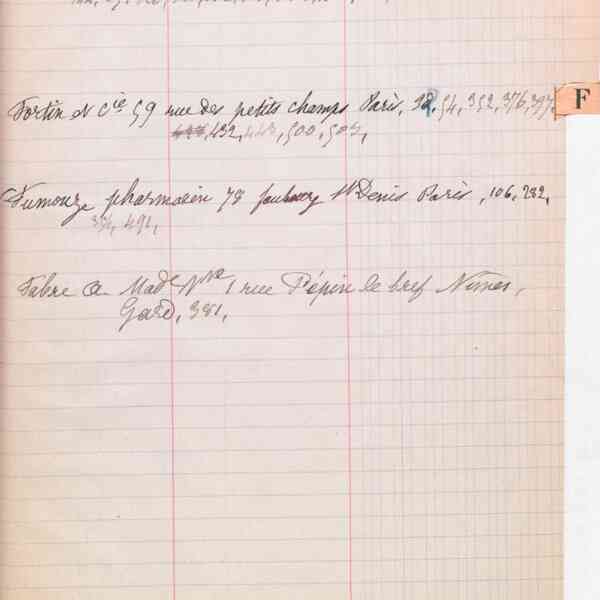 F
Fortin et Cie 59 rue des petits champs Paris, 54, 352, 376, 397,
432, 448, 500, 507,
Fumouze pharmacien 78 faubourg St Denis Paris, 106, 282,
491,
Fabre A. Made Nve 1 rue Pépin le bref Nimes,
Gard, 381,